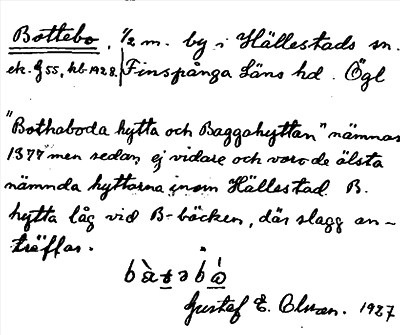 Bottebo, 1/2 m. by i Hällestads sn.
ek. G 55, hb. 1928. Finspånga Läns hd. Ögl
"Bothaboda hytta och Baggahyttan" nämnas
1377 men sedan ej vidare och voro de älsta
nämnda hyttorna inom Hällestad. B.
hytta låg vid B-bäcken, där slagg an-
träffas.
Gustaf E. Olsson. 1927